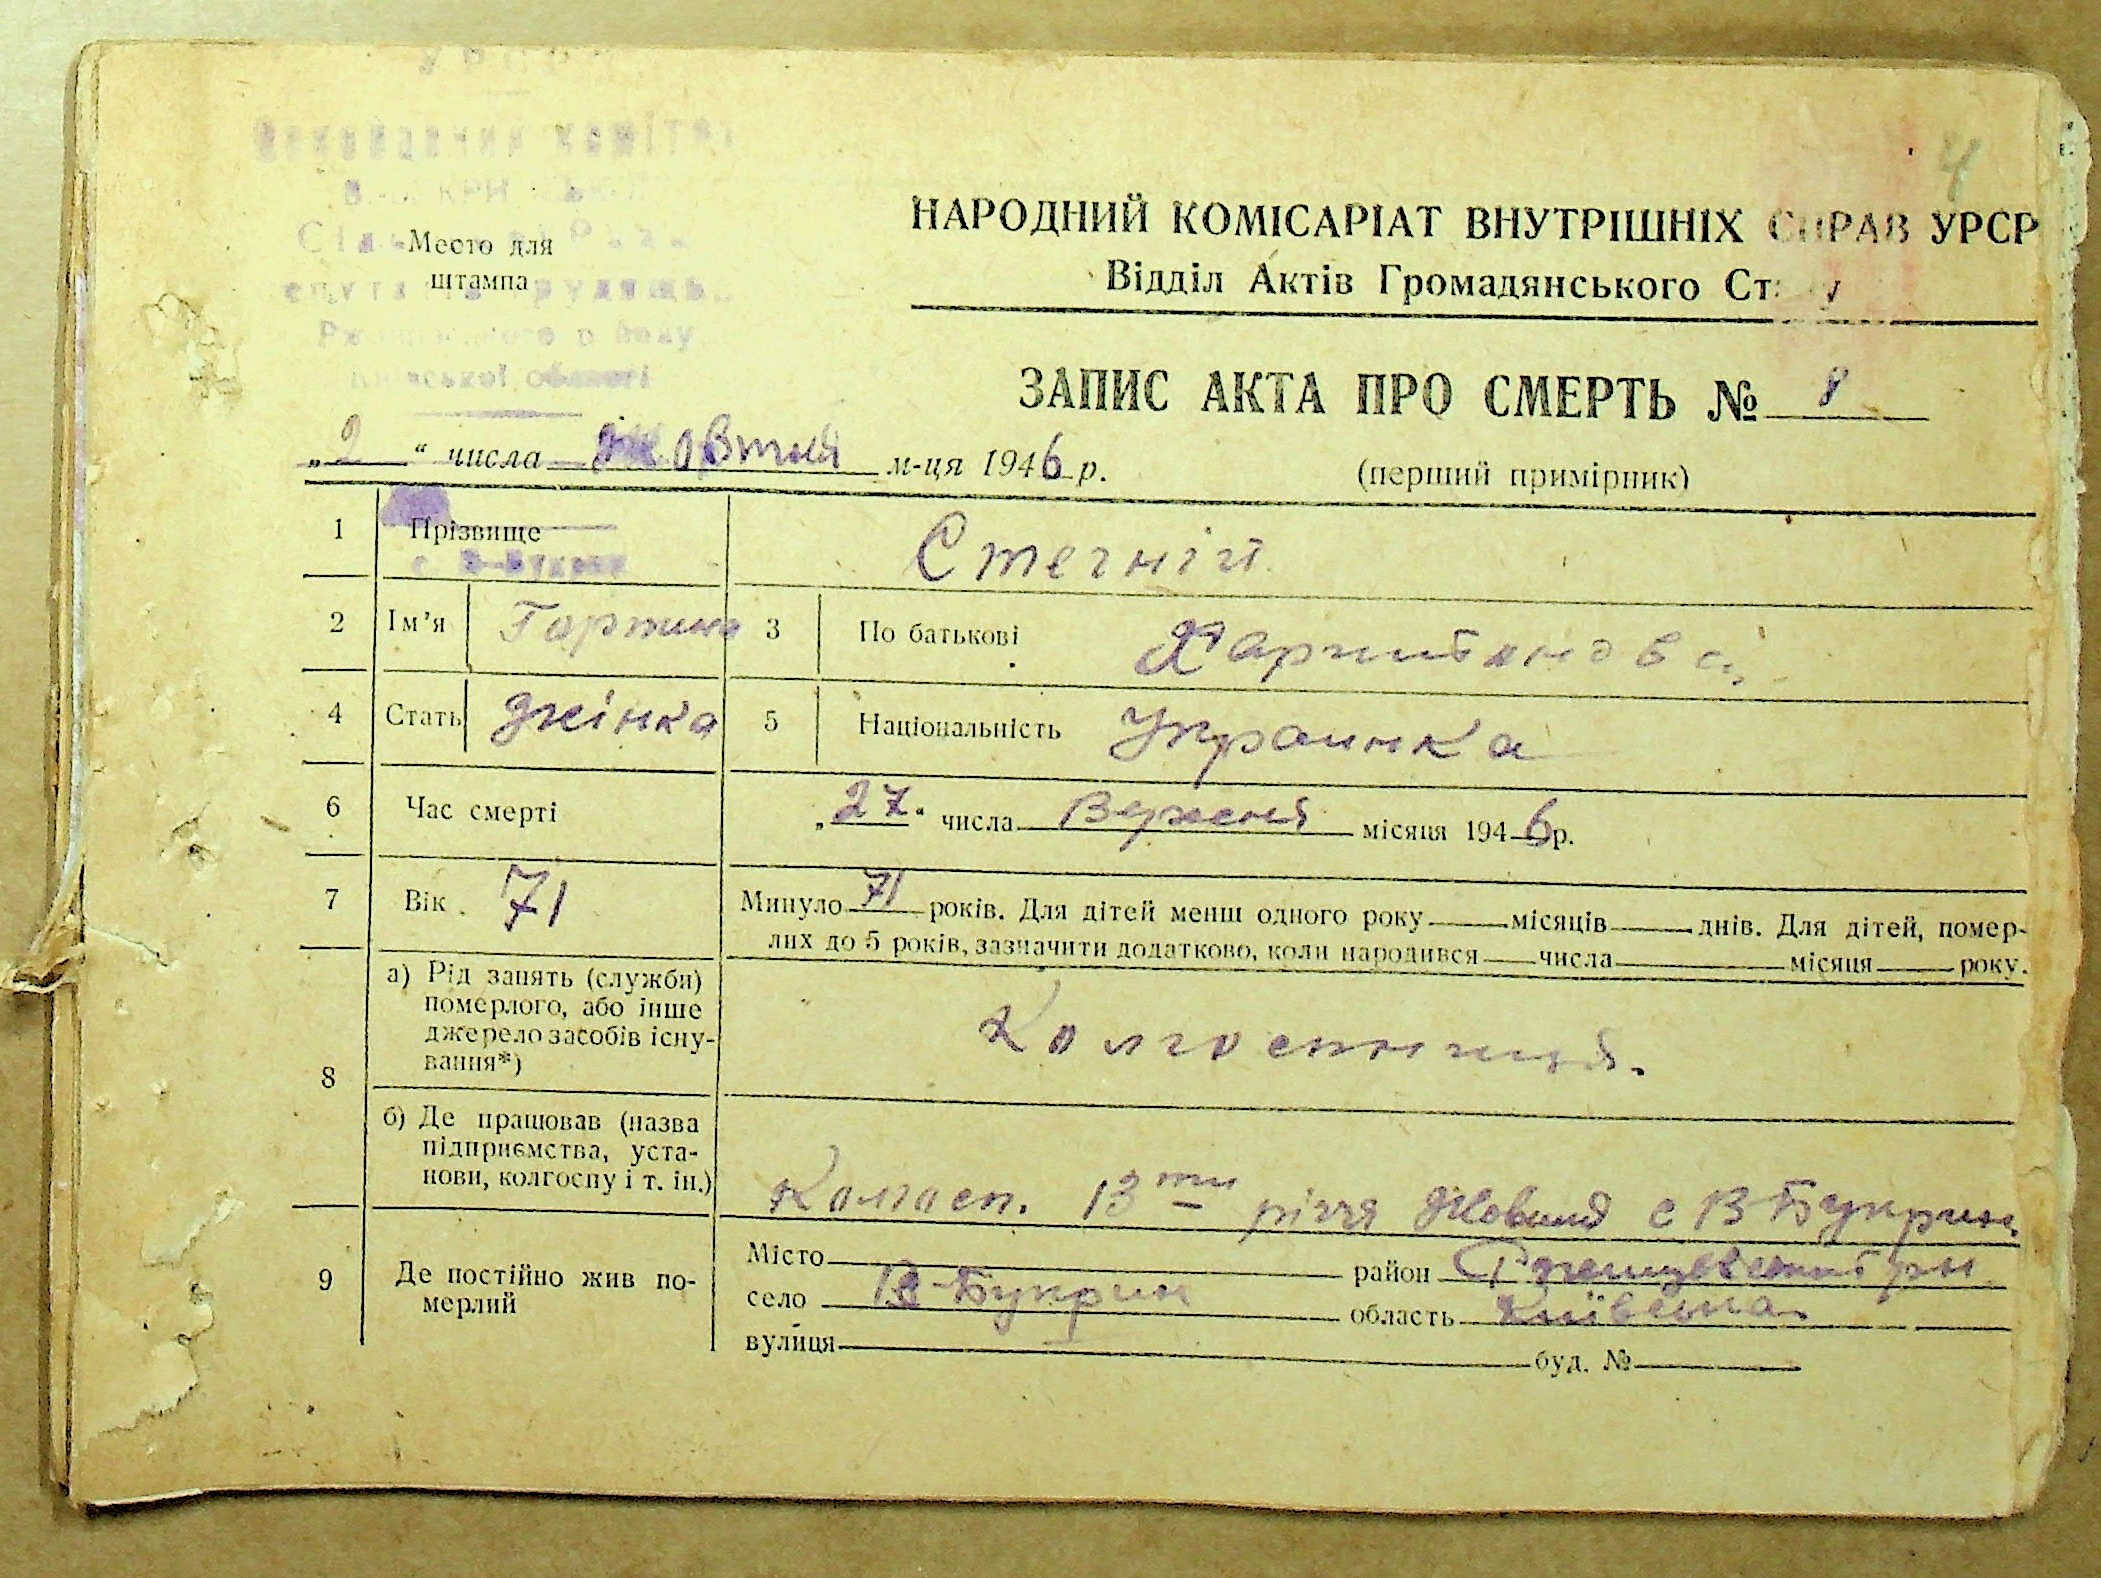 4
Место для
штампа
НАРОДНИЙ КОМІСАРІАТ ВНУТРІШНІХ СПРАВ УРСР
Відділ Актів Громадянського Ст
ЗАПИС АКТА ПРО СМЕРТЬ № 8
„2“ числа жовтня м-ця 1946 р.
(перший примірник)
1 Прізвище Стегній
2 Ім'я 3 По батькові Харитоновна
4 Стать жінка 5 Національність Украинка
6 Час смерті „27“ числа Вересня місяця 1946 р.
7 Вік 71 Минуло 71 років. Для дітей менш одного року місяців днів. Для дітей, помер-
лих до 5 років, зазначити додатково, коли народився числа місяця року.
8 а) Рід занять (служби)
померлого, або інше
джерело засобів існу-
вання*)
Колгоспниця.
б) Де працював (назва
підприємства, уста-
нови, колгоспу і т. ін.)
Колгосп. 13ти річчя Жовтня с В Букрин
9 Де постійно жив по-
мерлий
Місто район
село В-Букрин область Київська
вулиця буд. №